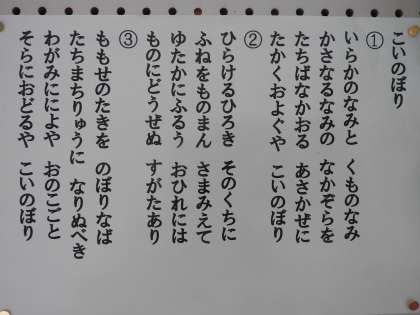 こいのぼり
①
いらかのなみと　くものなみ
かさなるなみの　なかぞらを
たちばなかおる　あさかぜに
たかくおよぐや　こいのぼり
②
ひらけるひろき　そのくちに
ふねをものまん　さまみえて
ゆたかにふるう　おひれには
ものにどうぜぬ　すがたあり
③
ももせのたきを　のぼりなば
たちまちりゅうに　なりぬべき
わがみにによや　おのこごと
そらにおどるや　こいのぼり